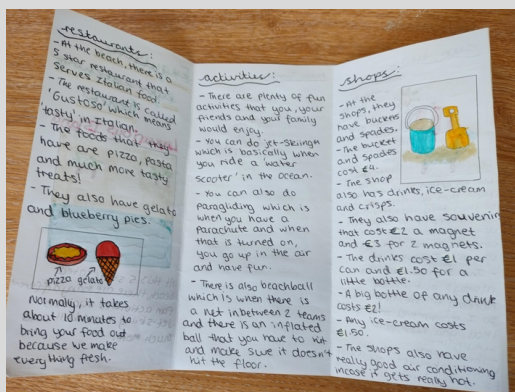 restaurants:
- At the beach, there is a
5 star restaurant that
serves Italian food.
- The restaurant is called
'Gustoso' which means
'tasty' in Italian.
- The foods that they
have are pizza, pasta
and much more tasty
treats!
- They also have gelato
and blueberry pies.
pizza gelato
Normally, it takes
about 10 minutes to
bring your food out
because we make
everything fresh.
activities:
- There are plenty of fun
activities that you, your
friends and your family
would enjoy.
- You can do jet-skiingh
which is basically when
you ride a 'water
scooter' in the ocean.
- You can also do
paragliding which is
when you have a
parachute and when
that is turned on,
you go up in the air
and have fun.
- There is also beachball
which is when there is
a net inbetween 2 teams
and there is an inflated
ball that you have to hit
and make sure it doesn't
hit the floor.
shops:
- At the
shops, they
have buckets
and spades.
- The bucket
and spades
cost €4.
- The shop
also has drinks, ice-cream
and crisps.
- They also have souvenir
that cost €2 a magnet
and €3 for 2 magnets.
- The drinks cost €1 per
can and €1.50 for a
little bottle.
- A big bottle of any drink
costs €2!
- Any ice-cream costs
€1.50.
- The shops also have
really good air conditioning
incase it gets really hot.